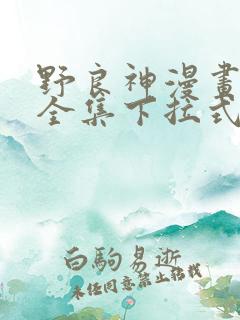 野良神漫畫
全集下拉式
白駒易逝
未经同意禁止转载